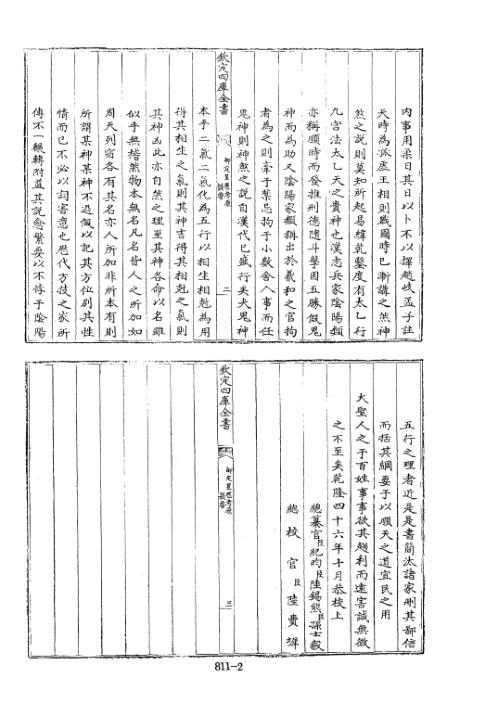 內事用柔日其日以卜不以擇趙岐孟子註
天時為孤虛王相則戰國時已漸講之然神
煞之說則莫知所起易緯乾鑿度有太乙行
九宮法太乙天之貴神也漢志兵家陰陽類
亦稱順時而發推刑德隨斗擊因五勝假鬼
神而為助又陰陽家類稱出於羲和之官拘
者為之則牽于禁忌拘于小數舍人事而任
鬼神則神煞之說自漢代已盛行矣夫鬼神
欽定四庫全書
御定星歷考原
提要
二
本乎二氣二氣化為五行以相生相尅為用
得其相生之氣則其神吉得其相尅之氣則
其神凶此亦自然之理至其神各命以名雖
似乎無稽然物本無名凡名皆人之所加如
周天列宿各有其名亦人所加非所本有則
所謂某神某神不過假以記其方位别其性
情而已不必以詞害意也歴代方技之家所
傳不一輾轉附益其說愈繁要以不悖于陰陽
五行之理者近是是書簡汰諸家刪其鄙倍
而括其綱要于以順天之道宜民之用
大聖人之于百姓事事欲其趨利而遠害誠無微
之不至矣乾隆四十六年十月恭校上
總纂官臣紀昀臣陸錫熊臣孫士毅
總校官臣陸費墀
欽定四庫全書
御定星歷考原
提要
三
811-2